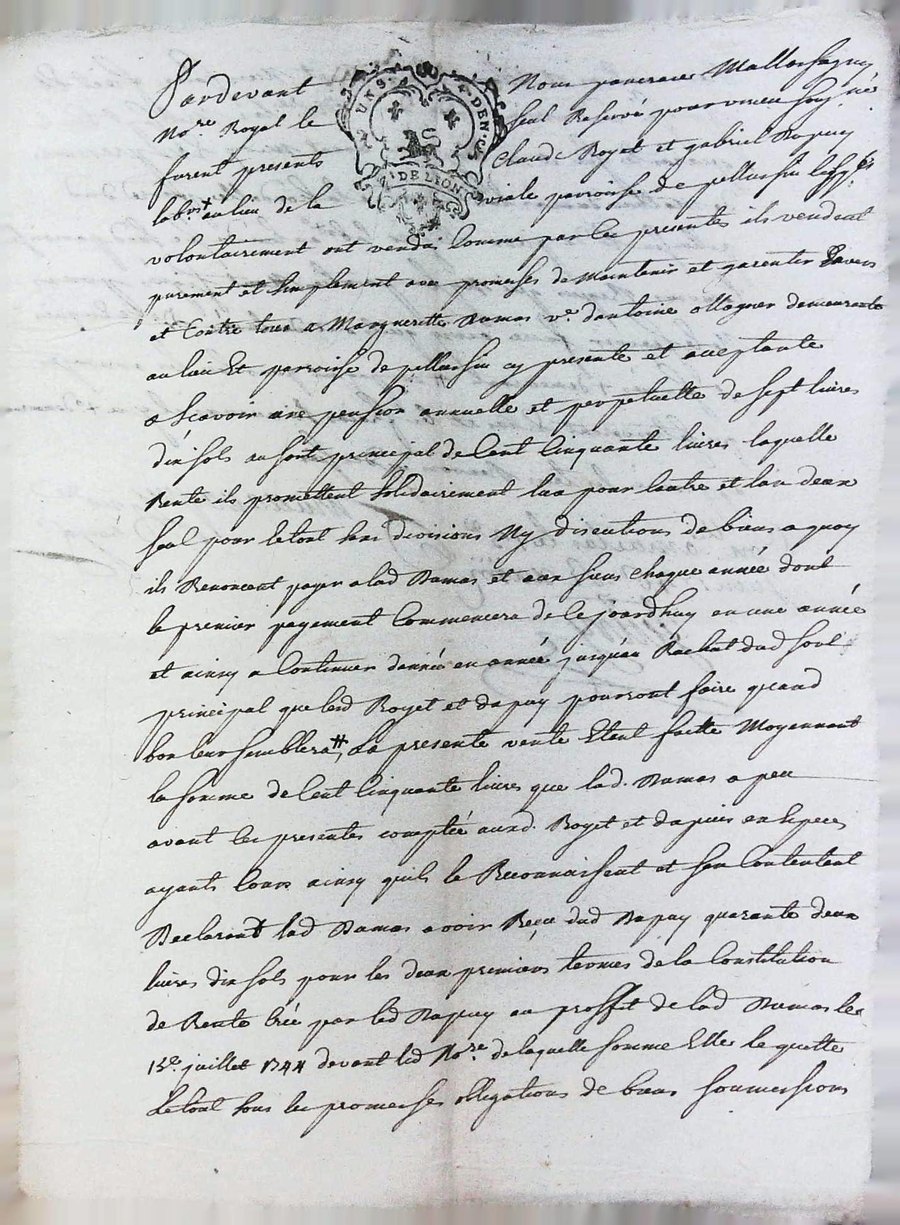 Pardevant Nous pancrace Mallassagny
No.re Royal le seul Reservé pour verneu soussigné
furent presents Claude Boyet et gabriel Dapuy
UN S. DEN.
G. DE LION
labrs au lieu de la viale parroisse de pellussin lesq.ls
volontairement ont vendu comme par les presentes ils vendent
purement et simplement avec promesses de Maintenir et garentir Envers
et Contre tous a Marguerette Dumas ve. dantoine ollagner demeurante
au lieu Et parroisse de pellussin cy presente et acceptante
a Scavoir une pension annuelle et perpetuelle de sept livres
dix sols au sort principal de Cent Cinquante livres laquelle
Rente ils promettent Solidairement lun pour lautre et lun deux
seul pour le tout sans divisions Ny discutions de biens a quoy
ils Renoncent payer a lad Dumas et aux siens chaque année dont
le premier payement Commencera de ce jourdhuy en une année
et ainsy a Continuer dannée en année jusquau Rachat dud sort
principal que lesd Boyet et dapuy pourront faire quand
bon leur semblera ++, La presente vente Etant faitte Moyennant
la somme de Cent Cinquante livres que lad. Dumas a peu
avant les presentes comptée auxd. Boyet et dapuis en Especes
ayants Cours ainsy quils le Reconnaissent et sen Contentent
Declarant lad Dumas avoir Reçu dud Dapuy quarante deux
livres dix sols pour les deux premiers termes de la Constitution
de Rente Créé par led Dapuy au proffit de lad Dumas le
15e. juillet 1744 devant led No.re de laquelle somme Elle le quitte
Le tout sous les promesses obligations de biens soumissions